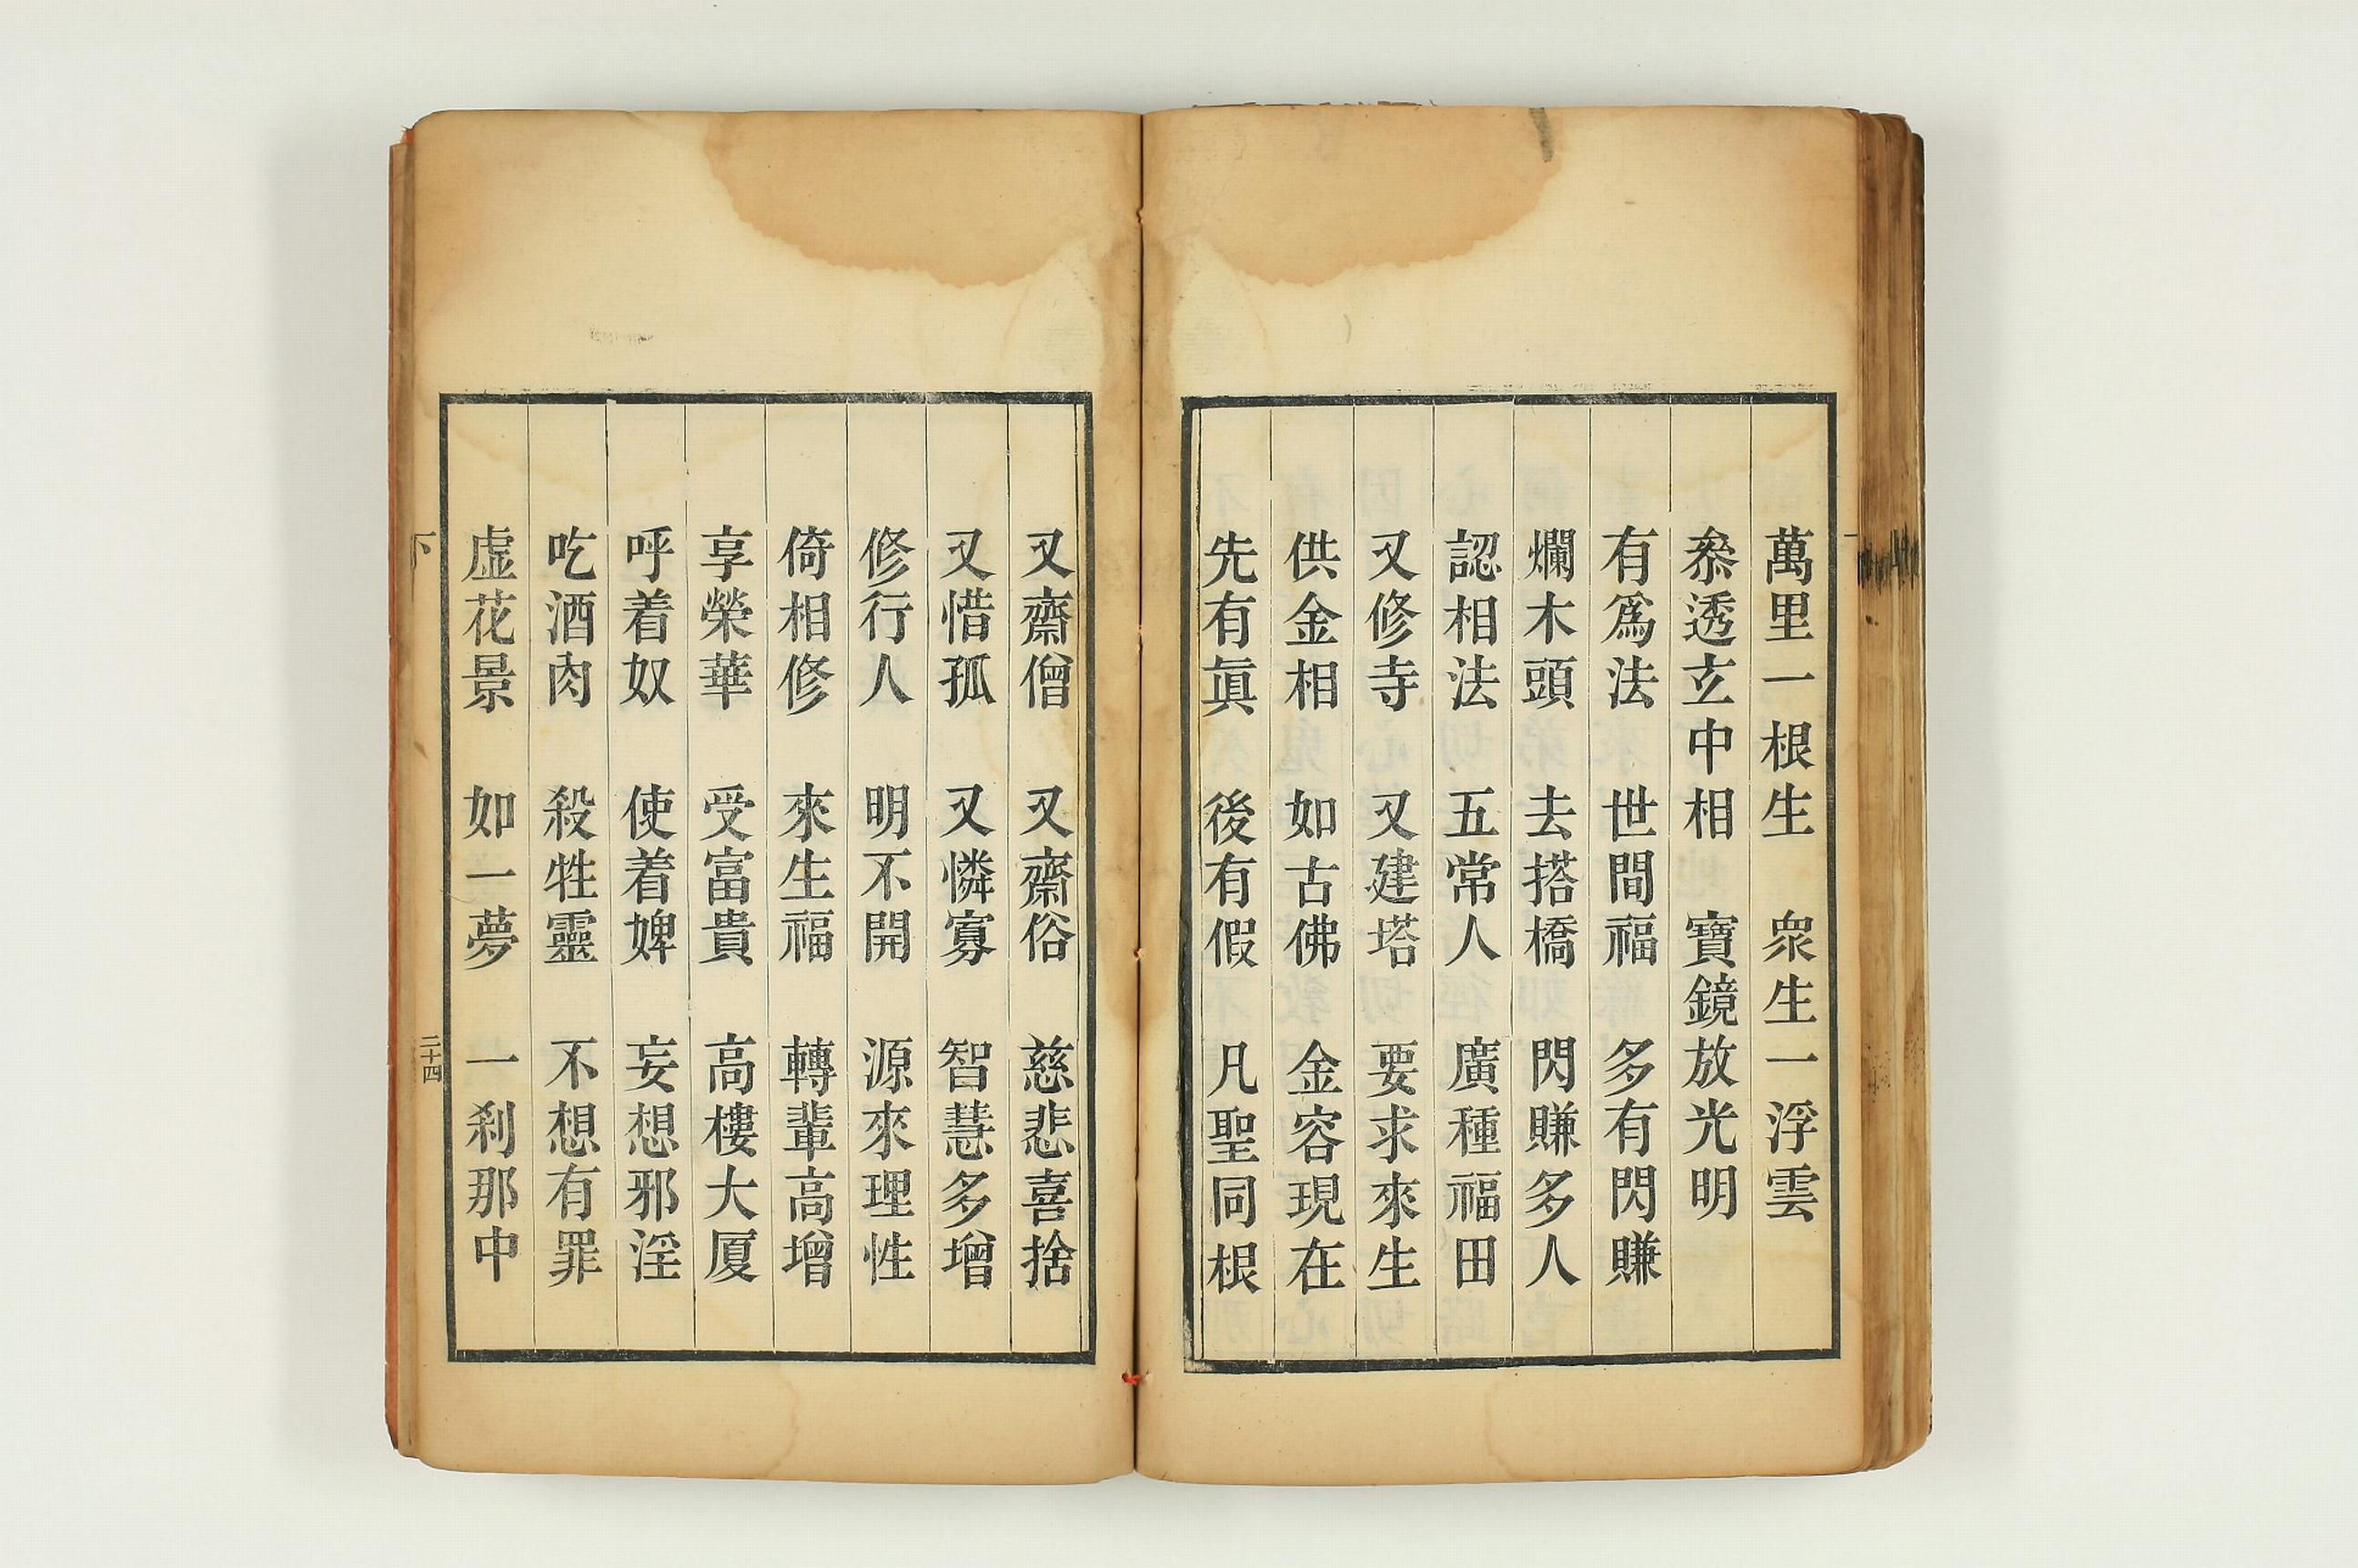 萬里一根生　衆生一浮雲
叅透玄中相　寶鏡放光明
有爲法　世間福　多有閃賺
爛木頭　去搭橋　閃賺多人
認相法　五常人　廣種福田
又修寺　又建塔　要求來生
供金相　如古佛　金容現在
先有眞　後有假　凡聖同根
又齋僧　又齋俗　慈悲喜捨
又惜孤　又憐寡　智慧多增
修行人　明不開　源來理性
倚相修　來生福　轉輩高增
享榮華　受富貴　高樓大厦
呼着奴　使着婢　妄想邪淫
吃酒肉　殺牲靈　不想有罪
虛花景　如一夢　一刹那中
下　二十四